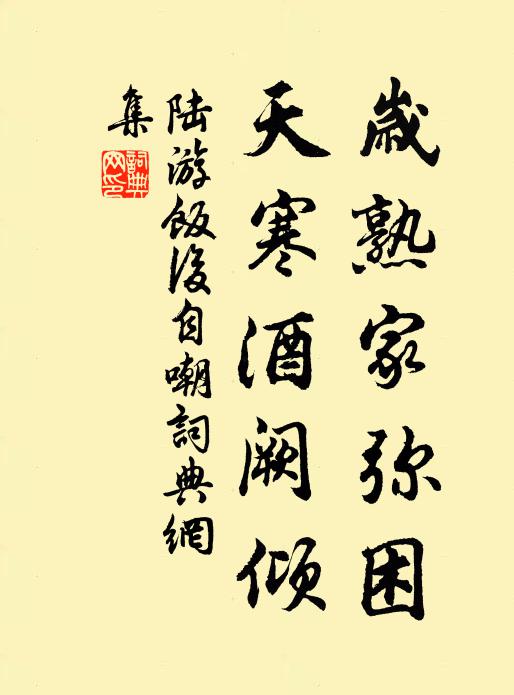 歲熟家弥困
天寒酒阙倾
陆游飯後自嘲詞典網
集
詞典
网印